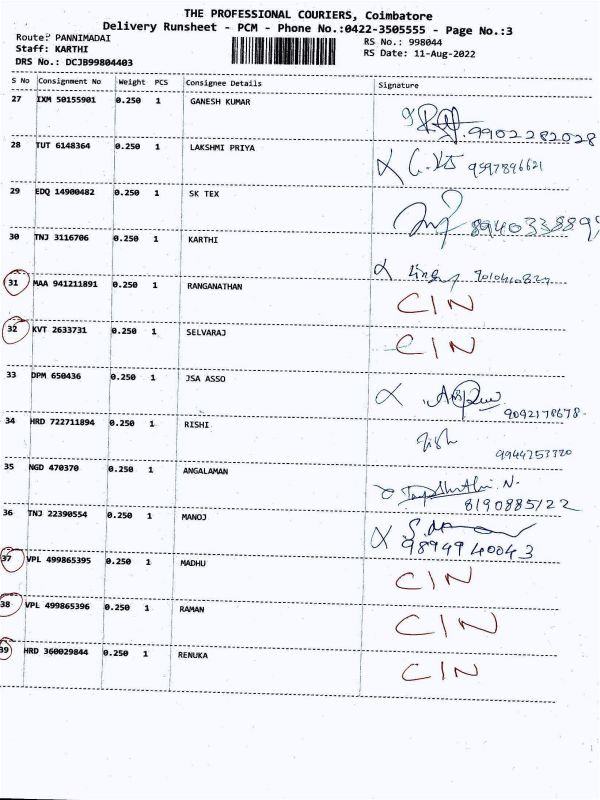 THE PROFESSIONAL COURIERS, Coimbatore
Delivery Runsheet - PCM - Phone No.:0422-3505555 - Page No.:3
Route: PANNIMADAI
RS No.: 998044
Staff: KARTHI
RS Date: 11-Aug-2022
DRS No.: DCJB99804403
S No Consignment No Weight PCS Consignee Details Signature
27 IXM 50155901 0.250 1 GANESH KUMAR
9902282028
28 TUT 6148364 0.250 1 LAKSHMI PRIYA
9597896621
29 EDQ 14900482 0.250 1 SK TEX
8940338899
30 TNJ 3116706 0.250 1 KARTHI
31 MAA 941211891 0.250 1 RANGANATHAN
CIN
32 KVT 2633731 0.250 1 SELVARAJ
CIN
33 DPM 650436 0.250 1 JSA ASSO
9092178678
34 HRD 722711894 0.250 1 RISHI
9944753320
35 NGD 470370 0.250 1 ANGALAMAN
8190885122
36 TNJ 22390554 0.250 1 MANOJ
9894940043
37 VPL 499865395 0.250 1 MADHU
CIN
38 VPL 499865396 0.250 1 RAMAN
CIN
39 HRD 360029844 0.250 1 RENUKA
CIN